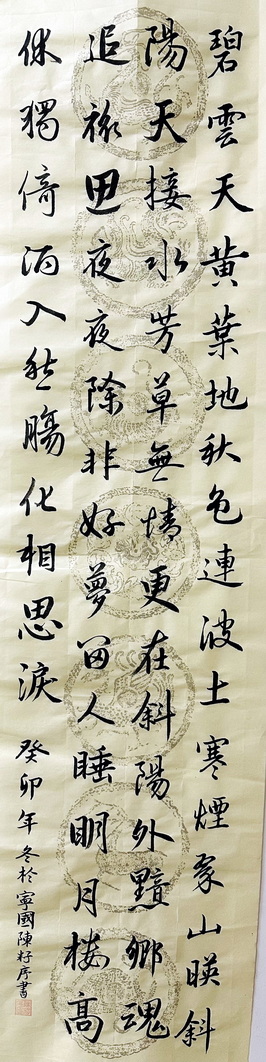 碧雲天黄葉地秋色連波上寒煙翠山暎斜
陽天接水芳草無情更在斜陽外黯鄉魂
追旅思夜夜除非好夢留人睡明月樓高
休獨倚酒入愁腸化相思淚
癸卯年冬於寧國陳籽房書